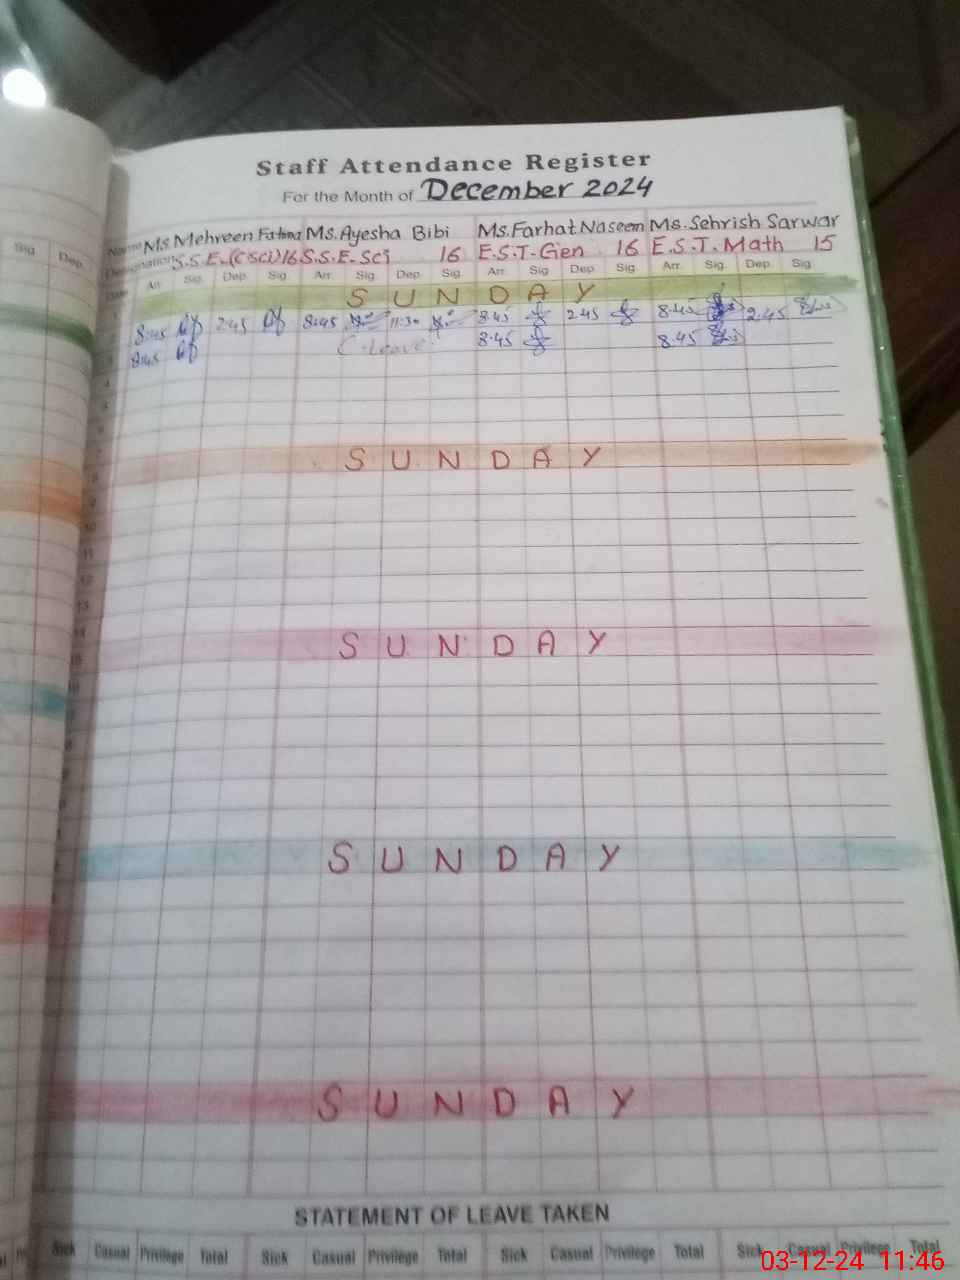 Staff Attendance Register
For the Month of December 2024
Sig. Dep. Name Ms. Mehreen Fatima Ms. Ayesha Bibi Ms. Farhat Naseem Ms. Sehrish Sarwar
Designation S.S.E.(CSci)16 S.S.E.Sci 16 E.S.T.Gen 16 E.S.T. Math 15
Date Arr. Sig. Dep. Sig. Arr. Sig. Dep. Sig. Arr. Sig. Dep. Sig. Arr. Sig. Dep. Sig.
SUNDAY
8:45 2:45 8:45 11:30 8.45 2.45 8.45 2.45
8:45 C-leave 8.45 8.45
4
SUNDAY
9
10
11
12
13
14 SUNDAY
15
SUNDAY
SUNDAY
STATEMENT OF LEAVE TAKEN
Sick Casual Privilege Total Sick Casual Privilege Total Sick Casual Privilege Total Sick Casual Privilege Total
03-12-24 11:46